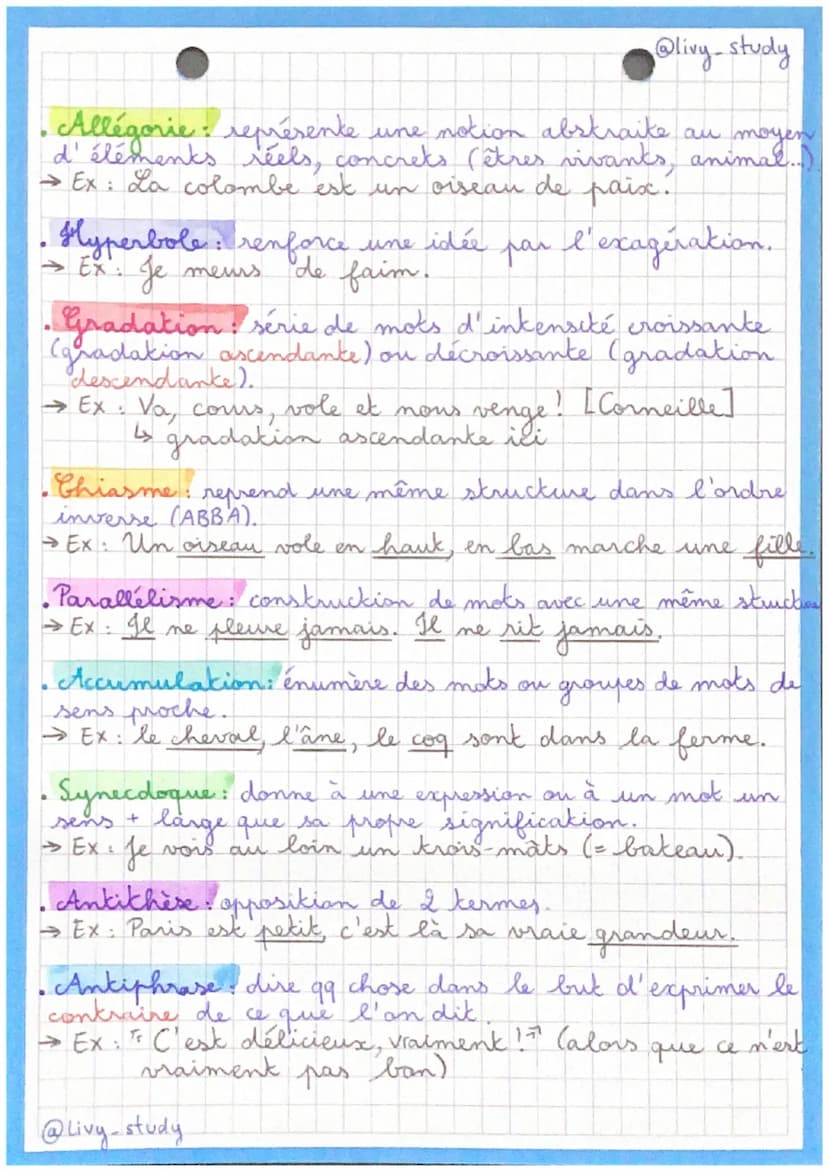 @livy_study
• Allégorie : représente une notion abstraite au moyen
d'éléments réels, concrets (êtres vivants, animal...)
→ Ex : La colombe est un oiseau de paix.
• Hyperbole : renforce une idée par l'exagération.
→ Ex : Je meurs de faim.
• Gradation : série de mots d'intensité croissante
(gradation ascendante) ou décroissante (gradation
descendante).
→ Ex : Va, cours, vole et nous venge ! [Corneille]
↳ gradation ascendante ici
• Chiasme : reprend une même structure dans l'ordre
inverse (ABBA).
→ Ex : Un oiseau vole en haut, en bas marche une fille.
• Parallélisme : construction de mots avec une même structure
→ Ex : Il ne pleure jamais. Il ne rit jamais.
• Accumulation : énumère des mots ou groupes de mots de
sens proche.
→ Ex : le cheval, l'âne, le coq sont dans la ferme.
• Synecdoque : donne à une expression ou à un mot un
sens + large que sa propre signification.
→ Ex : Je vois au loin un trois-mâts (= bateau).
• Antithèse : opposition de 2 termes.
→ Ex : Paris est petit, c'est là sa vraie grandeur.
• Antiphrase : dire qq chose dans le but d'exprimer le
contraire de ce que l'on dit.
→ Ex : "C'est délicieux, vraiment !" (alors que ce n'est
vraiment pas bon)
@livy_study